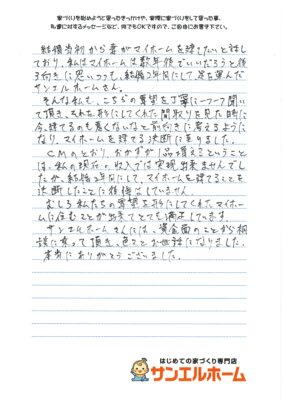 家づくりを始めようと思ったきっかけや、実際に家づくりをして思った事、
私達に対するメッセージなど、何でもOKですので、ご自由にお書き下さい。
結婚当初から妻がマイホームを建てたいと話し
ており、私はマイホームは数年後でいいだろうと後
ろ向きに思いつつも、結婚2年目にして足を運んだ
サンエルホームさん。
そんな私も、こちらの要望を丁寧に一つ一つ聞い
て頂き、それを形にしてくれた間取りを見た時に
今、建てるのも悪くないなと前向きに考えるようにな
り、マイホームを建てる決断に至りました。
CMのとおり、おかずが1品増えるということ
は、私の現在の収入では実現出来ませんでし
たが、結婚2年目にして、マイホームを建てることを
決断したことに後悔はしていません。
むしろ私たちの要望を形にしてくれたマイホー
ムに住むことが出来てとても満足しています。
サンエルホームさんには、資金面のことから相
談に乗って頂き、色々とお世話になりました。
本当にありがとうございました。
はじめての家づくり専門店
サンエルホーム